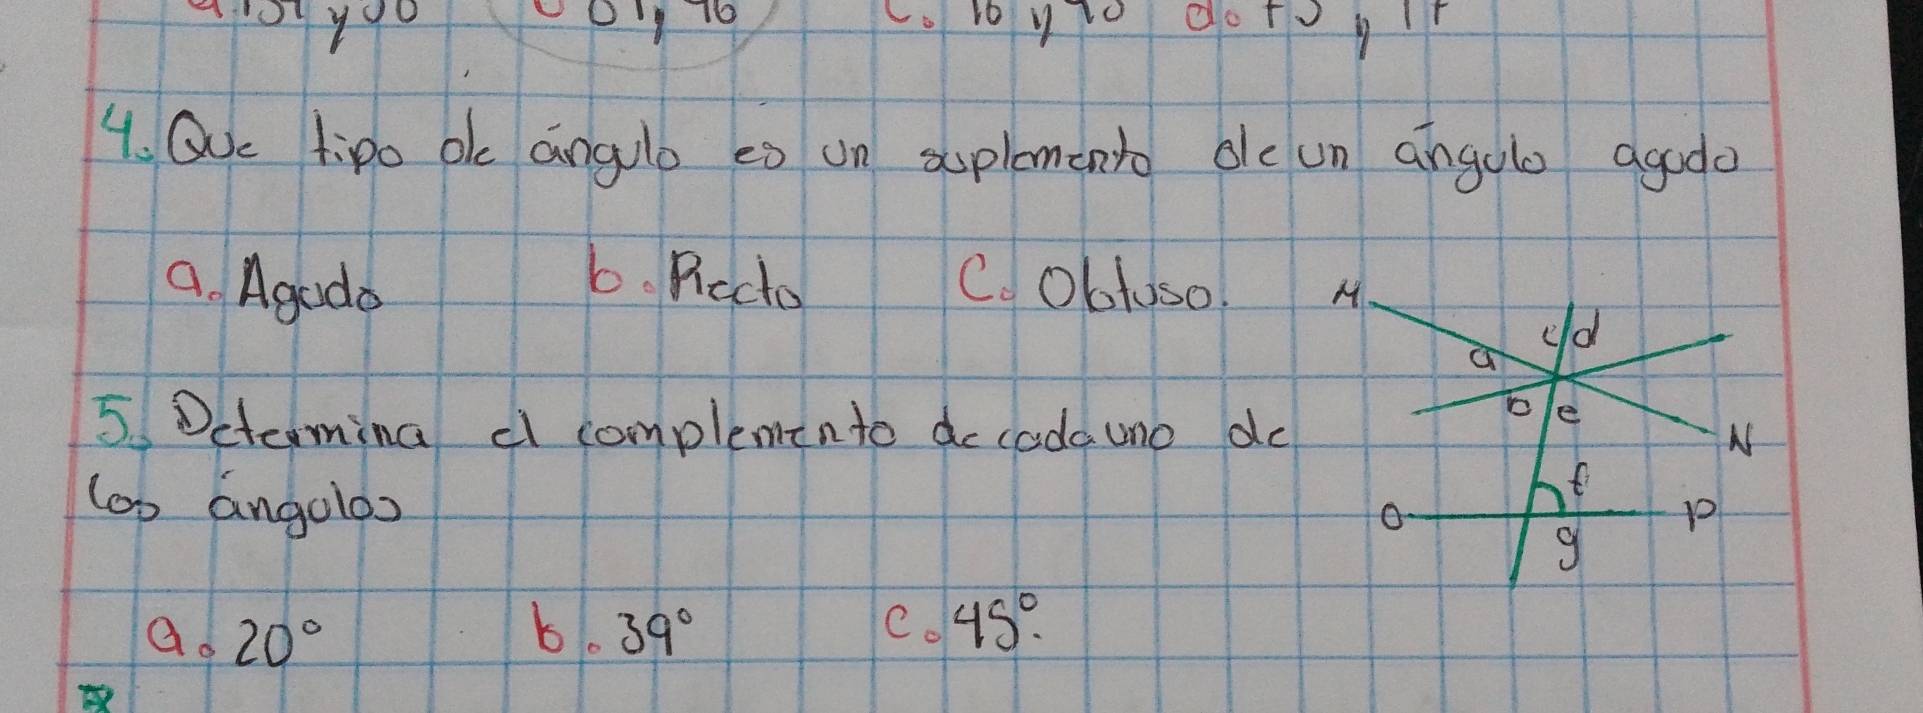 4. Que tipo de ángulo es un suplemento de un ángulo agudo
a. Agudo b. Recto C. Obtuso.
M
c d
a
b e
N
5. Determina el complemento de cada uno de
los ángulos
f
O P
g
a. 20° b. 39° c. 45°.